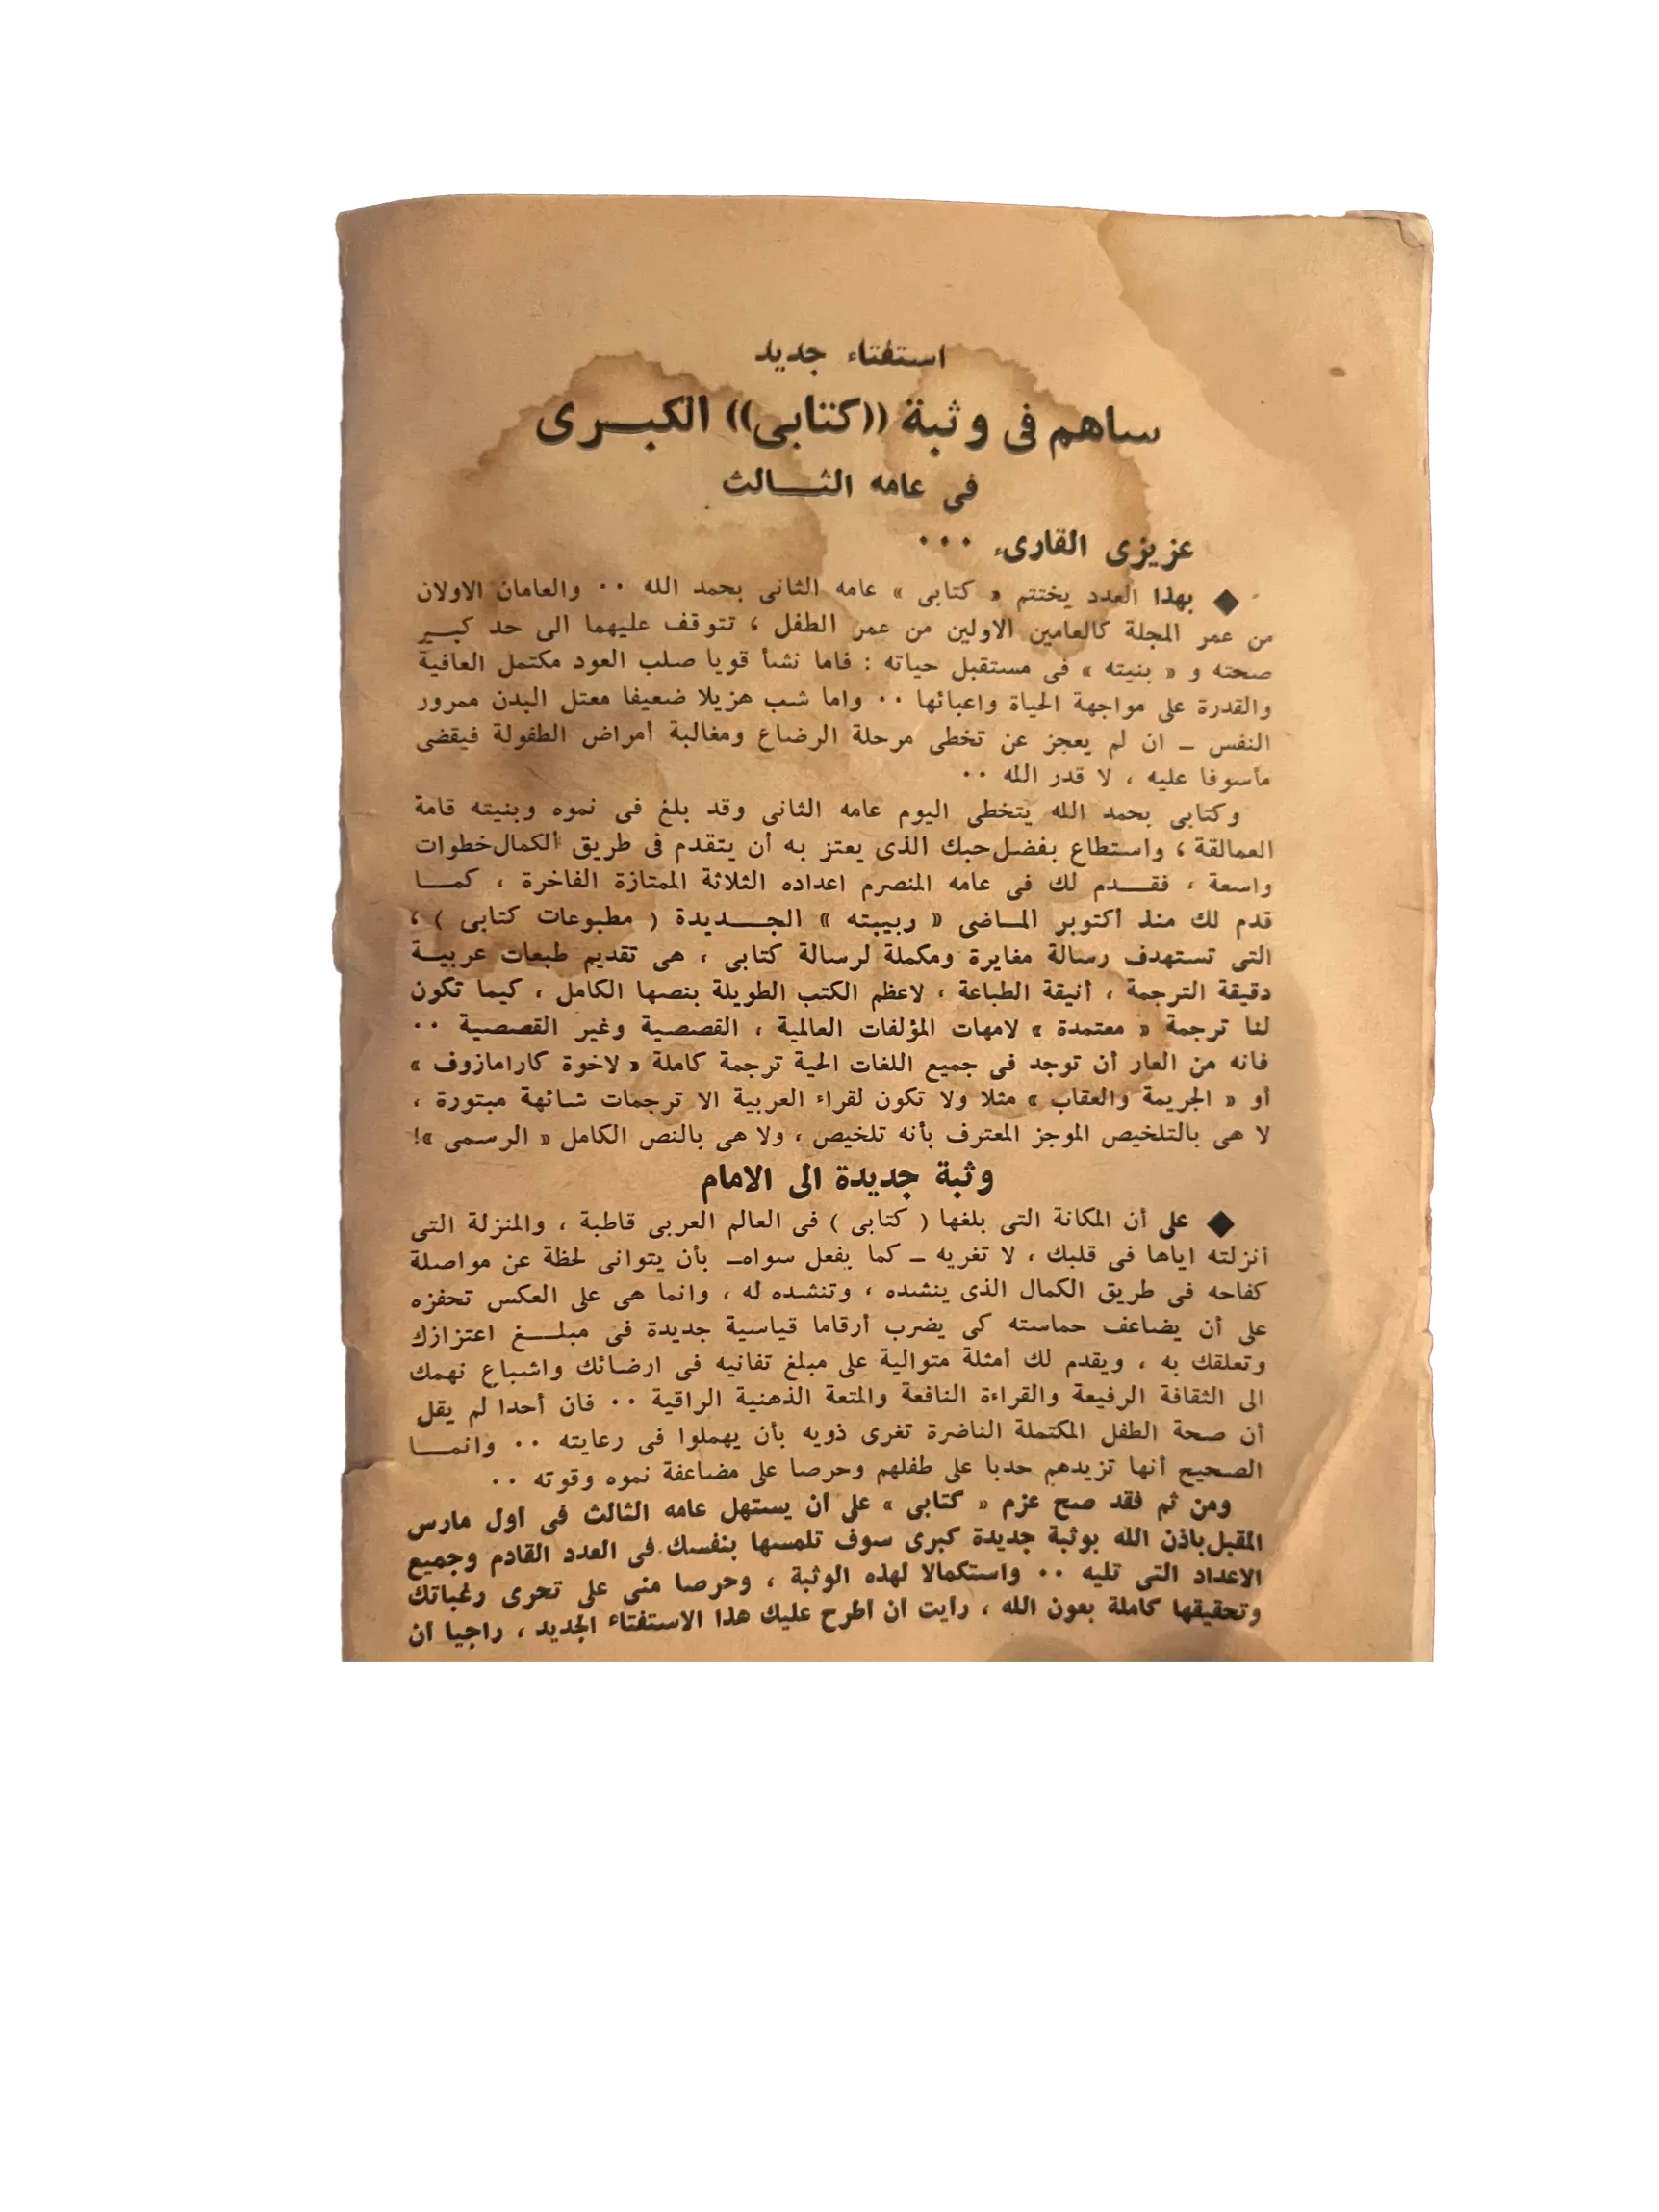 استفتاء جديد
ساهم فى وثبة ((كتابى)) الكبـــرى
فى عامه الثـــالث
عزيزى القارىء ...
◆ بهذا العدد يختتم « كتابى » عامه الثانى بحمد الله .. والعامان الاولان
من عمر المجلة كالعامين الاولين من عمر الطفل ، تتوقف عليهما الى حد كبـير
صحته و « بنيته » فى مستقبل حياته : فاما نشأ قويا صلب العود مكتمل العافية
والقدرة على مواجهة الحياة واعبائها .. واما شب هزيلا ضعيفا معتل البدن ممرور
النفس ــ ان لم يعجز عن تخطى مرحلة الرضاع ومغالبة أمراض الطفولة فيقضى
مأسوفا عليه ، لا قدر الله ..
وكتابى بحمد الله يتخطى اليوم عامه الثانى وقد بلغ فى نموه وبنيته قامة
العمالقة ، واستطاع بفضل حبك الذى يعتز به أن يتقدم فى طريق الكمال خطوات
واسعة ، فقـــدم لك فى عامه المنصرم اعداده الثلاثة الممتازة الفاخرة ، كمــا
قدم لك منذ أكتوبر المـاضى « ربيبته » الجـــديدة ( مطبوعات كتابى ) ،
التى تستهدف رسالة مغايرة ومكملة لرسالة كتابى ، هى تقديم طبعات عربيــة
دقيقة الترجمة ، أنيقة الطباعة ، لاعظم الكتب الطويلة بنصها الكامل ، كيما تكون
لنا ترجمة « معتمدة » لامهات المؤلفات العالمية ، القصصية وغير القصصية ..
فانه من العار أن توجد فى جميع اللغات الحية ترجمة كاملة « لاخوة كارامازوف »
أو « الجريمة والعقاب » مثلا ولا تكون لقراء العربية الا ترجمات شائهة مبتورة ،
لا هى بالتلخيص الموجز المعترف بأنه تلخيص ، ولا هى بالنص الكامل « الرسمى »!
وثبة جديدة الى الامام
◆ على أن المكانة التى بلغها ( كتابى ) فى العالم العربى قاطبة ، والمنزلة التى
أنزلته اياها فى قلبك ، لا تغريه ــ كما يفعل سواه ــ بأن يتوانى لحظة عن مواصلة
كفاحه فى طريق الكمال الذى ينشده ، وتنشده له ، وانما هى على العكس تحفزه
على أن يضاعف حماسته كى يضرب أرقاما قياسية جديدة فى مبلـــغ اعتزازك
وتعلقك به ، ويقدم لك أمثلة متوالية على مبلغ تفانيه فى ارضائك واشباع نهمك
الى الثقافة الرفيعة والقراءة النافعة والمتعة الذهنية الراقية .. فان أحدا لم يقل
أن صحة الطفل المكتملة الناضرة تغرى ذويه بأن يهملوا فى رعايته .. وانمــا
الصحيح أنها تزيدهم حدبا على طفلهم وحرصا على مضاعفة نموه وقوته ..
ومن ثم فقد صح عزم « كتابى » على ان يستهل عامه الثالث فى اول مارس
المقبل باذن الله بوثبة جديدة كبرى سوف تلمسها بنفسك فى العدد القادم وجميع
الاعداد التى تليه .. واستكمالا لهذه الوثبة ، وحرصا منى على تحرى رغباتك
وتحقيقها كاملة بعون الله ، رأيت ان اطرح عليك هذا الاستفتاء الجديد ، راجيا ان